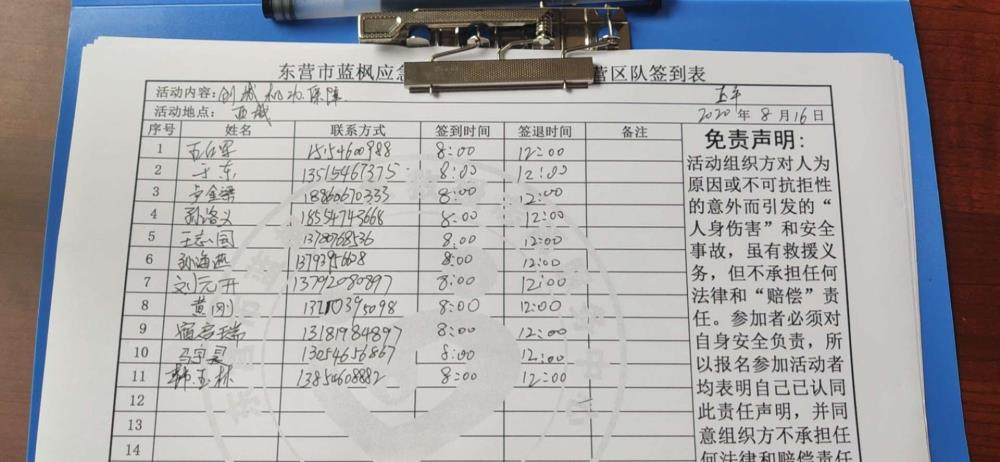 东营市蓝枫应急 营区队签到表
活动内容: 创城机动保障
上午
活动地点: 西城
2020年8月16日
序号 姓名 联系方式 签到时间 签退时间 备注
1 8:00 12:00
2 于东 13515467375 8:00 12:00
3 18860670333 8:00 12:00
4 孙洛义 18554743668 8:00 12:00
5 王志国 13700768536 8:00 12:00
6 孙海燕 8:00 12:00
7 刘元开 13792080897 8:00 12:00
8 黄刚 8:00 12:00
9 13181984897 8:00 12:00
10 13054656867 8:00 12:00
11 韩玉林 13854608882 8:00 12:00
12
13
14
免责声明:
活动组织方对人为
原因或不可抗拒性
的意外而引发的“
人身伤害”和安全
事故，虽有救援义
务，但不承担任何
法律和“赔偿”责
任。参加者必须对
自身安全负责，所
以报名参加活动者
均表明自己已认同
此责任声明，并同
意组织方不承担任
何法律和赔偿责任